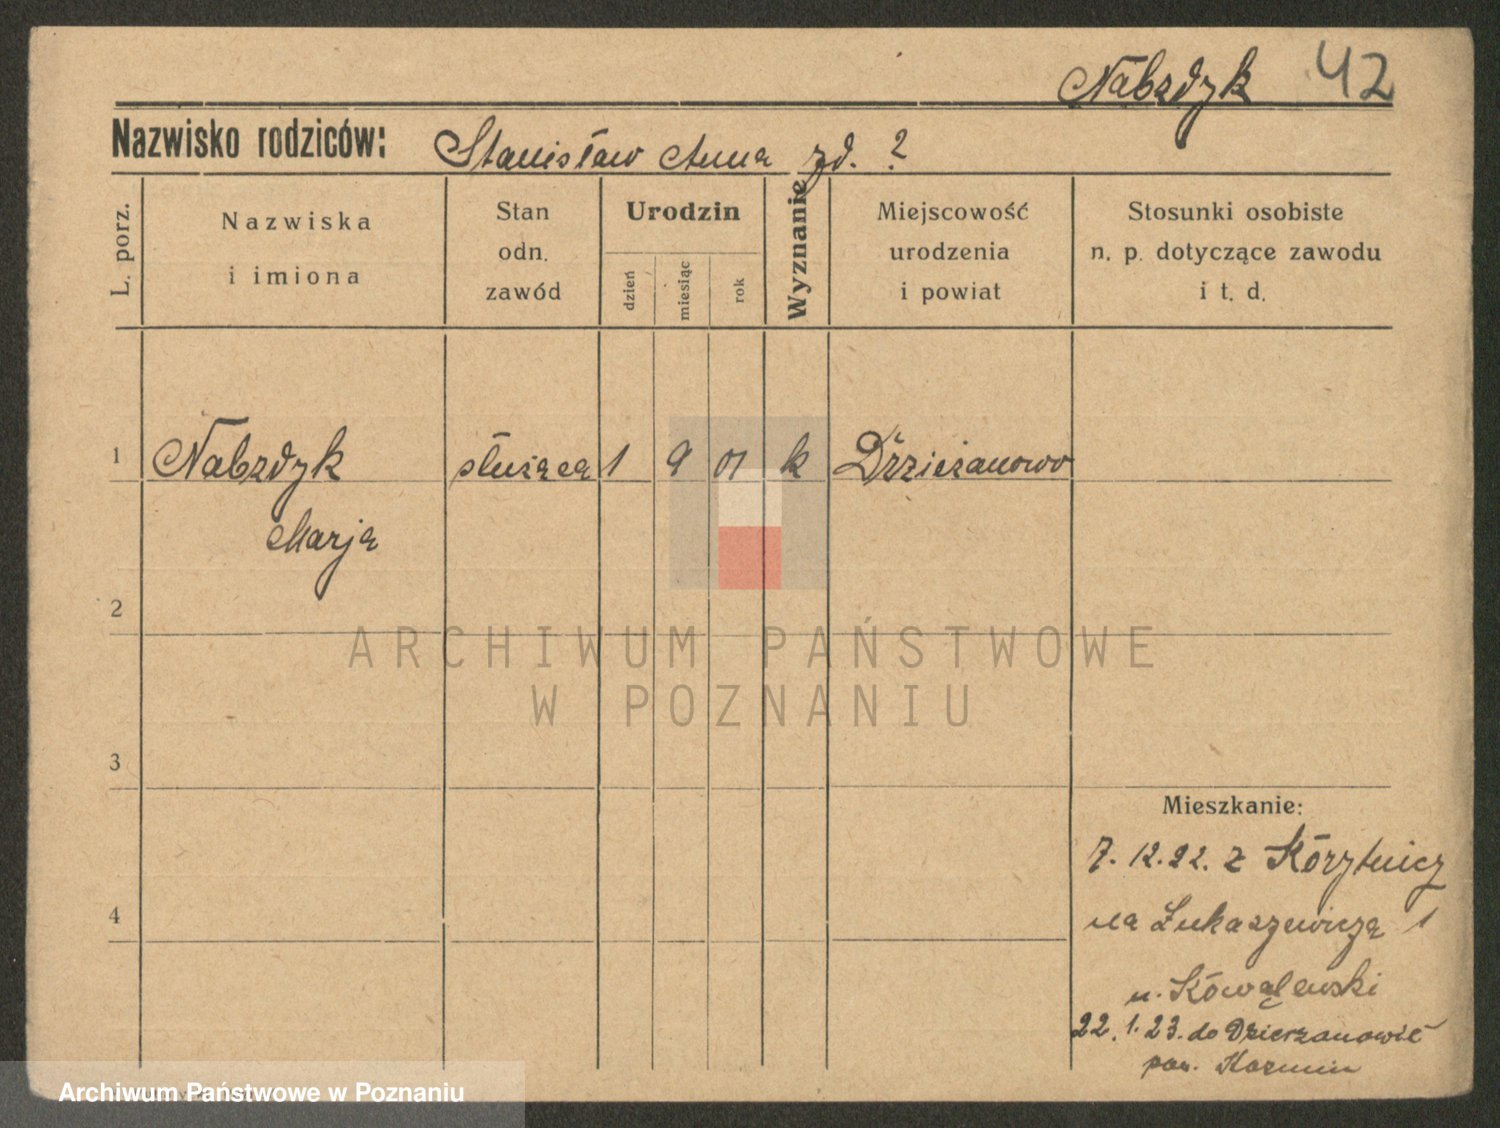 Nabzdyk 42
Nazwisko rodziców: Stanisław Anna zd. ?
L. porz.
Nazwiska
i imiona
Stan
odn.
zawód
Urodzin
dzień
miesiąc
rok
Wyznanie
Miejscowość
urodzenia
i powiat
Stosunki osobiste
n. p. dotyczące zawodu
i t. d.
1 Nabzdyk służąca 1 9 01 k Dzierzanowo
Marja
2
ARCHIWUM PAŃSTWOWE
W POZNANIU
3
Mieszkanie:
7. 12. 22. z Korytnicy
4
na Łukaszewicza 1
u. Kowalewski
22. 1. 23. do Dzierzanowie
pow. Kozmin
Archiwum Państwowe w Poznaniu